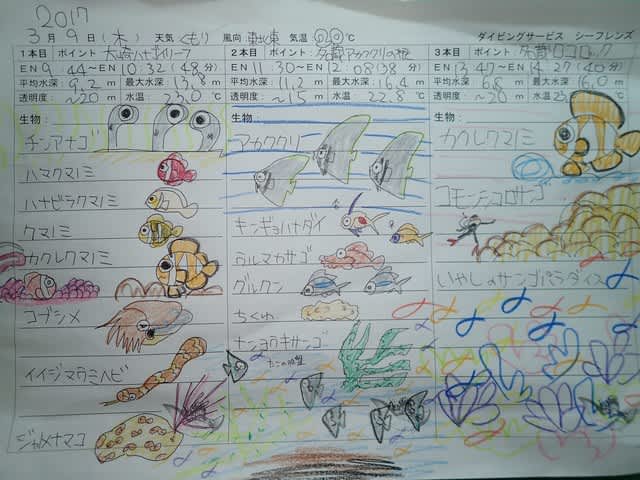 2017
3月9日(木) 天気 くもり 風向 東北東 気温 20℃ ダイビングサービス シーフレンズ
1本目 ポイント: 大崎ハナゴイリーフ
EN 9:44〜EN 10:32(48分)
平均水深: 9.2m 最大水深: 13.8m
透明度: 〜20m 水温 23.0℃
生物:
チンアナゴ
ハマクマノミ
ハナビラクマノミ
クマノミ
カクレクマノミ
コブシメ
イイジマウミヘビ
ジャノメナマコ
2本目 ポイント: アカククリの根
EN 11:30〜EN 12:08(38分)
平均水深: 11.2m 最大水深: 16.4m
透明度: 〜15m 水温: 22.8℃
生物:
アカククリ
キンギョハナダイ
ウルマカサゴ
グルクン
ちくわ
ナンヨウキサンゴ
3本目 ポイント: ロック
EN 13:47〜EN 14:27(40分)
平均水深: 6.8m 最大水深: 16.0m
透明度: 〜20m 水温 23 ℃
生物:
カクレクマノミ
コモンシコロサンゴ
いやしのサンゴパラダイス